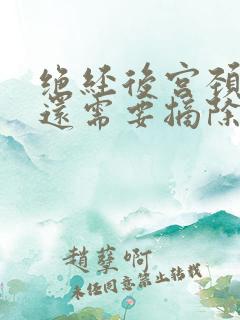 绝经後宫颈
還需要摘除
趙孽啊
未经同意禁止转载